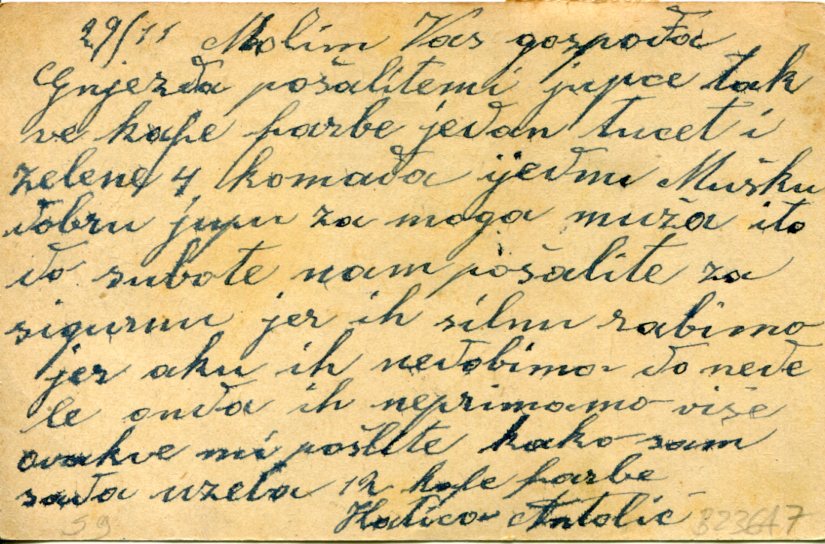 29/11 Molim Vas gospođa
Gnjezđa pošalitemi jupce tak
ve kafe farbe jeđan tucet i
zelene 4 komađa ijeđnu Mušku
đobru jupu za moga muža ito
đo subote nam pošalite za
sigurnu jer ih silnu rabimo
jer aku ih neđobimo đo neđe
le onđa ih neprimamo više
ovakve mi pošlite kako sam
sađa uzela 12 kafe farbe
Antolić
59 B236A7